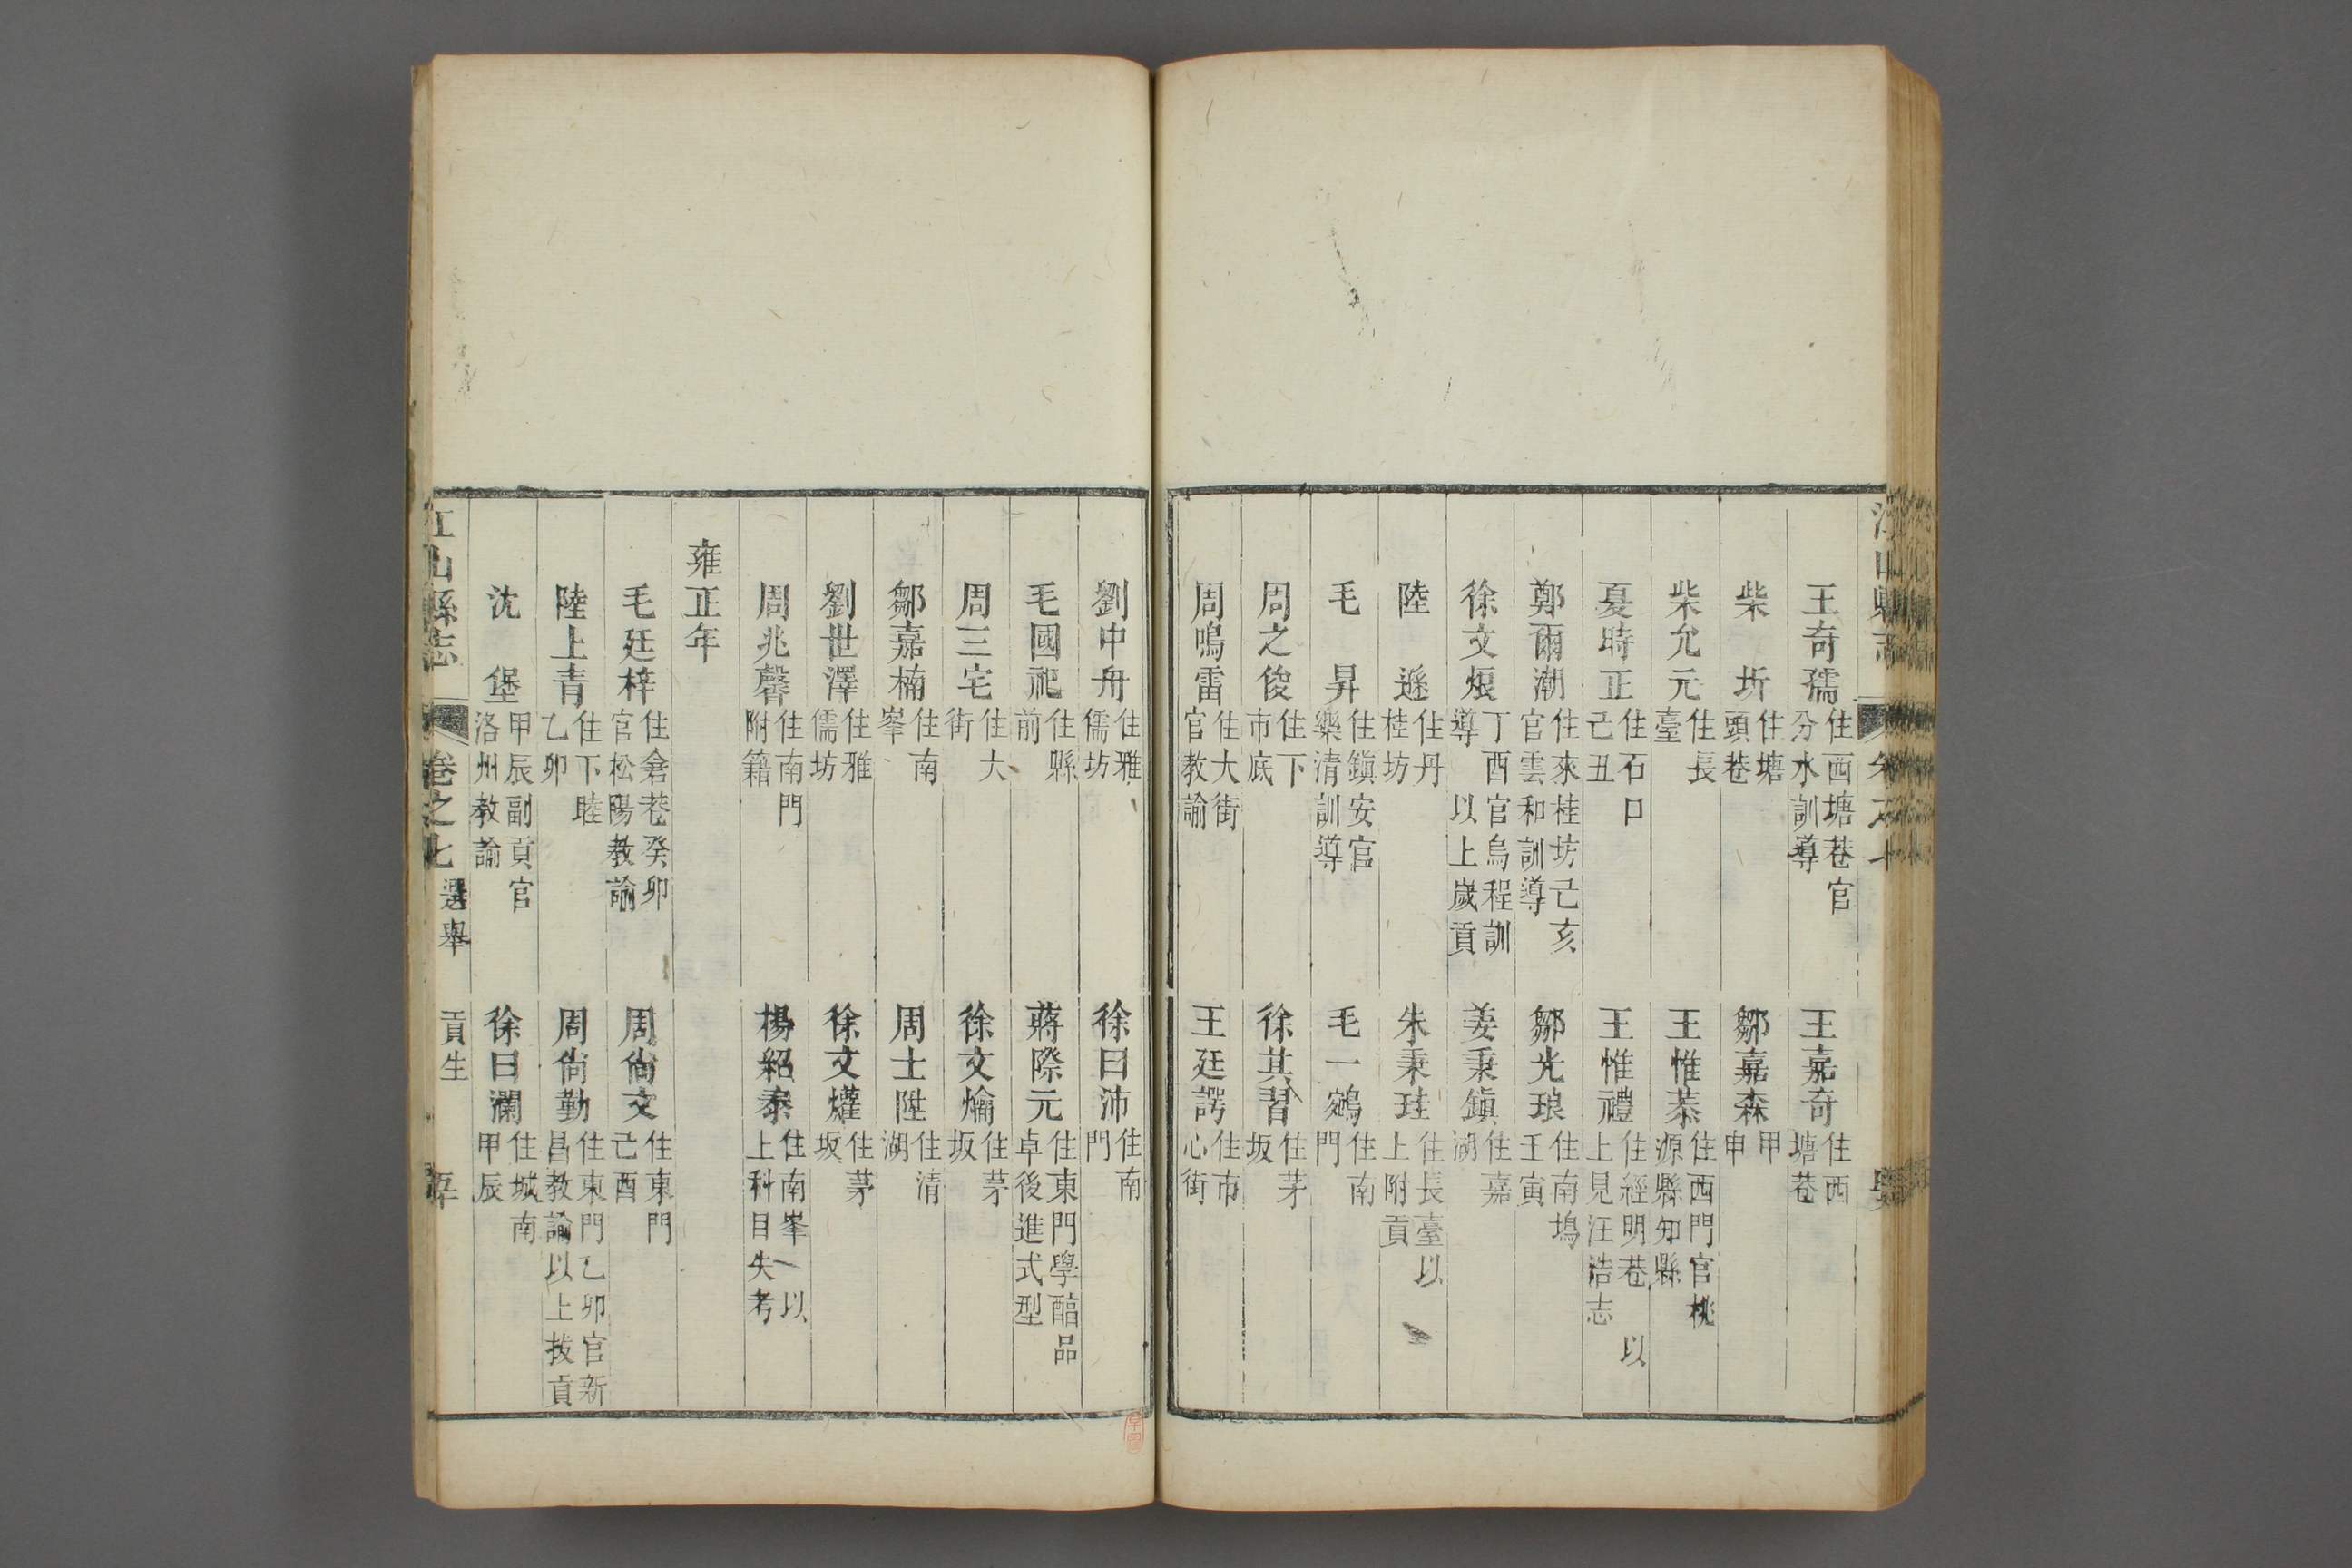 江山縣志 卷之七
王奇孺 住西塘巷官分水訓導 王嘉奇 住西塘巷
柴圻 住塘頭巷 鄒嘉森 甲申
柴允元 住長臺 王惟恭 住西門官桃源縣知縣
夏時正 住石口己丑 王惟禮 住經明巷以上見汪浩志
鄭爾潮 住來桂坊己亥官雲和訓導 鄒光琅 住南塢壬寅
徐文烺 丁酉官烏程訓導以上歲貢 姜秉鎮 住嘉湖
陸遜 住丹桂坊 朱秉珪 住長臺以上附貢
毛昇 住鎮安官樂清訓導 毛一鵷 住南門
周之俊 住下市底 徐其習 住茅坂
周鳴雷 住大街官教諭 王廷諤 住市心街
劉中舟 住雅儒坊 徐日沛 住南門
毛國祀 住縣前 蔣際元 住東門學醕品卓後進式型
周三宅 住大街 徐文爚 住茅坂
鄒嘉楠 住南峯 周士陞 住清湖
劉世澤 住雅儒坊 徐文爟 住茅坂
周兆馨 住南門附籍 楊紹泰 住南峯以上科目失考
雍正年
毛廷梓 住倉巷癸卯官松陽教諭 周尙文 住東門己酉
陸上青 住下睦乙卯 周尙勤 住東門乙卯官新昌教諭以上拔貢
沈堡 甲辰副貢官洛州教諭 徐日瀾 住城南甲辰
江山縣志 卷之七 選舉 貢生